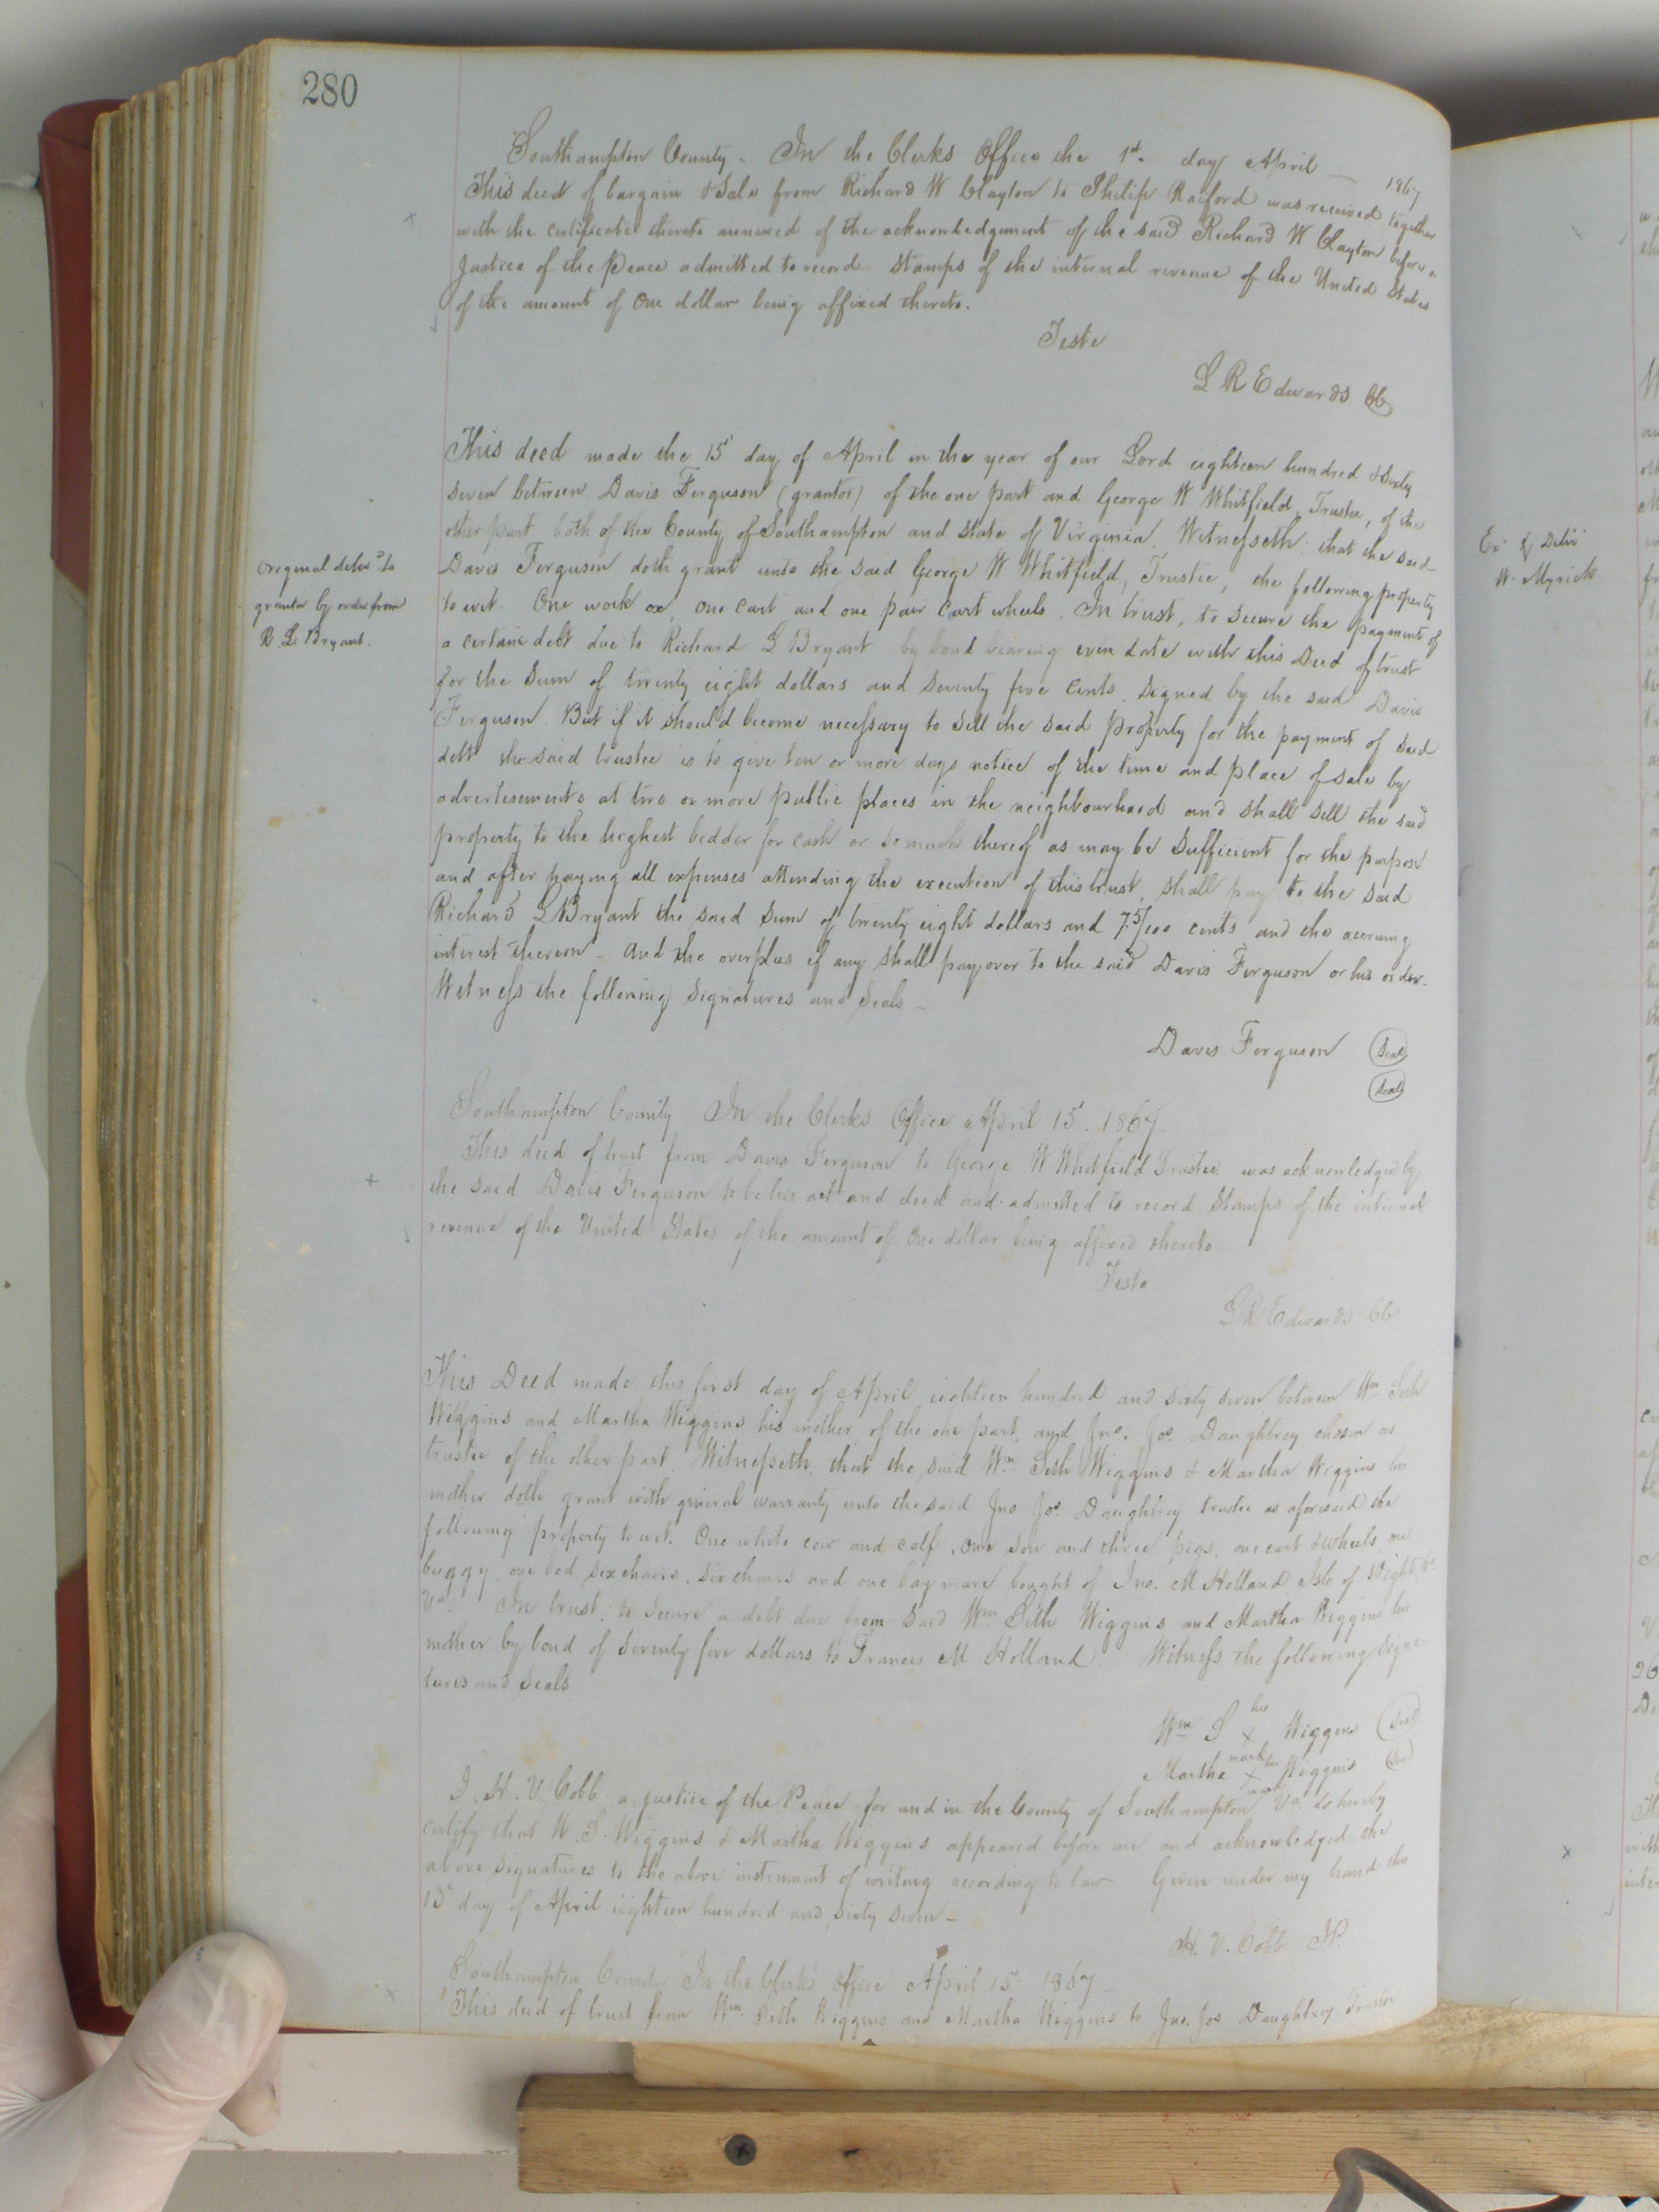 280
Southampton County. In the Clerks Office the 1st day April — 1867
This deed of bargain & Sale from Richard W Clayton to Philip Raiford was received together
with the certificate thereto annexed of the acknowledgment of the said Richard W Clayton before a
Justice of the Peace admitted to record Stamps of the internal revenue of the United States
of the amount of One dollar being affixed thereto.
Teste
L R Edwards CC
This deed made the 15 day of April in the year of our Lord eighteen hundred & Sixty
Seven between Davis Ferguson (grantor) of the one part and George W Whitfield, Trustee, of the
other part both of the County of Southampton and State of Virginia. Witnesseth: that the said
Davis Ferguson doth grant unto the said George W Whitfield, Trustee, the following property
to wit. One work ox, one cart and one pair Cart wheels. In trust, to secure the payment of
a certain debt due to Richard L Bryant by bond bearing even date with this Deed of trust
for the Sum of twenty eight dollars and Seventy five Cents. Signed by the said Davis
Ferguson. But if it should become necessary to Sell the said property for the payment of said
debt the said trustee is to give ten or more days notice of the time and place of sale by
advertisements at two or more public places in the neighbourhood and shall sell the said
property to the highest bidder for cash or so much thereof as may be Sufficient for the purpose
and after paying all expenses attending the execution of this trust, shall pay to the said
Richard L Bryant the said Sum of twenty eight dollars and 75/100 cents and the accruing
interest thereon - and the overplus if any shall pay over to the said Davis Ferguson or his order.
Witness the following Signatures and Seals -
Davis Ferguson Seal
Seal
original deliv'd to
grantor by order from
R. L Bryant.
Southampton County In the Clerks Office April 15. 1867.
This deed of trust from Davis Ferguson to George W Whitfield Trustee was acknowledged by
the said Davis Ferguson to be his act and deed and admitted to record Stamps of the internal
revenue of the United States of the amount of One dollar being affixed thereto
Teste
L R Edwards CC
This Deed made this first day of April eighteen hundred and sixty seven between Wm Seth
Wiggins and Martha Wiggins his mother, of the one part, and Jno. Jos. Daughtrey chosen as
trustee of the other part. Witnesseth, that the said Wm Seth Wiggins & Martha Wiggins his
mother doth grant with general warranty unto the said Jno Jos. Daughtrey trustee as aforesaid the
following property to wit. One white cow and calf, one sow and three pigs, one cart & wheels, one
buggy, one bed six chairs, six chairs and one bay mare bought of Jno. M Holland Isle of Wight Co
Va. In trust, to secure a debt due from said Wm Seth Wiggins and Martha Wiggins his
mother by bond of Seventy five dollars to Francis M Holland. Witness the following Signa-
tures and Seals
Wm S his x mark Wiggins Seal
Martha her x mark Wiggins Seal
I, H. V. Cobb a justice of the Peace for and in the County of Southampton Va. do hereby
certify that W. S. Wiggins & Martha Wiggins appeared before me and acknowledged the
above signatures to the above instrument of writing according to law Given under my hand this
15 day of April eighteen hundred and sixty seven -
H. V. Cobb JP.
Southampton County In the Clerk's Office April 15. 1867
This deed of trust from Wm. Seth Wiggins and Martha Wiggins to Jno. Jos Daughtrey Trustee
W. Myrick